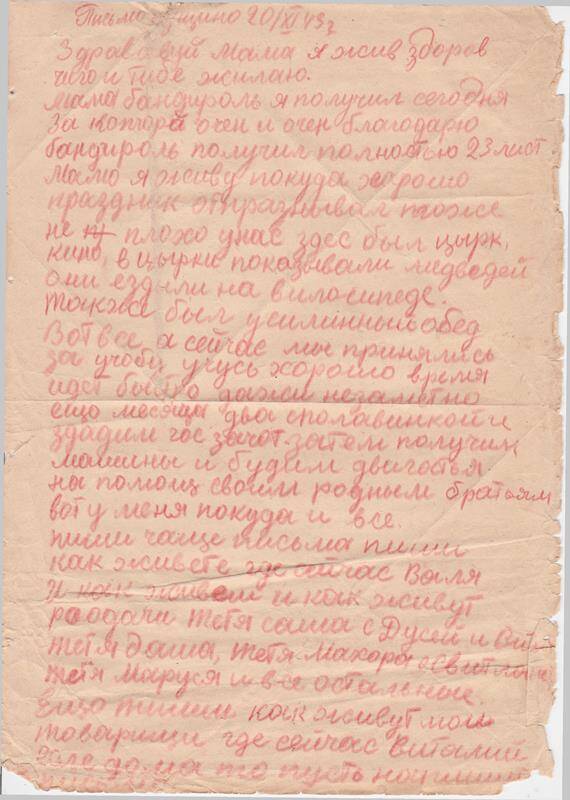 Письмо пущино 20/XI 43г
Здравствуй Мама я жив здоров
чего и тибе жилаю.
Мама бандироль я получил сегодня
За котора очен и очен благодарю
бандироль получил полностью 23 лист.
Мамо я живу покуда хорошо
праздник отпразнывал тоже
не плохо унас здес был цырк,
кино, в цырки показывали медведей
они ездили на вилосипеде.
также был усилинный обед
Вот все, а сейчас мы принялись
за учобу учусь хорошо время
идет быстро дажи незаметно
ещо месяца два сполавинкой и
здадим гос зачот. затем получим
машины и будим двиготься
на помощ своим родным братьям
вот у меня покуда и все.
пиши чаще письма пиши
как живете где сейчас Валя
и как живет и как живут
рсодачи тетя саша с Дусей и
тетя даша, тетя Махора
тетя Маруся и все остальные.
Ещо пиши как живут мои
товарищи где сейчас Виталий
если дома то пусть